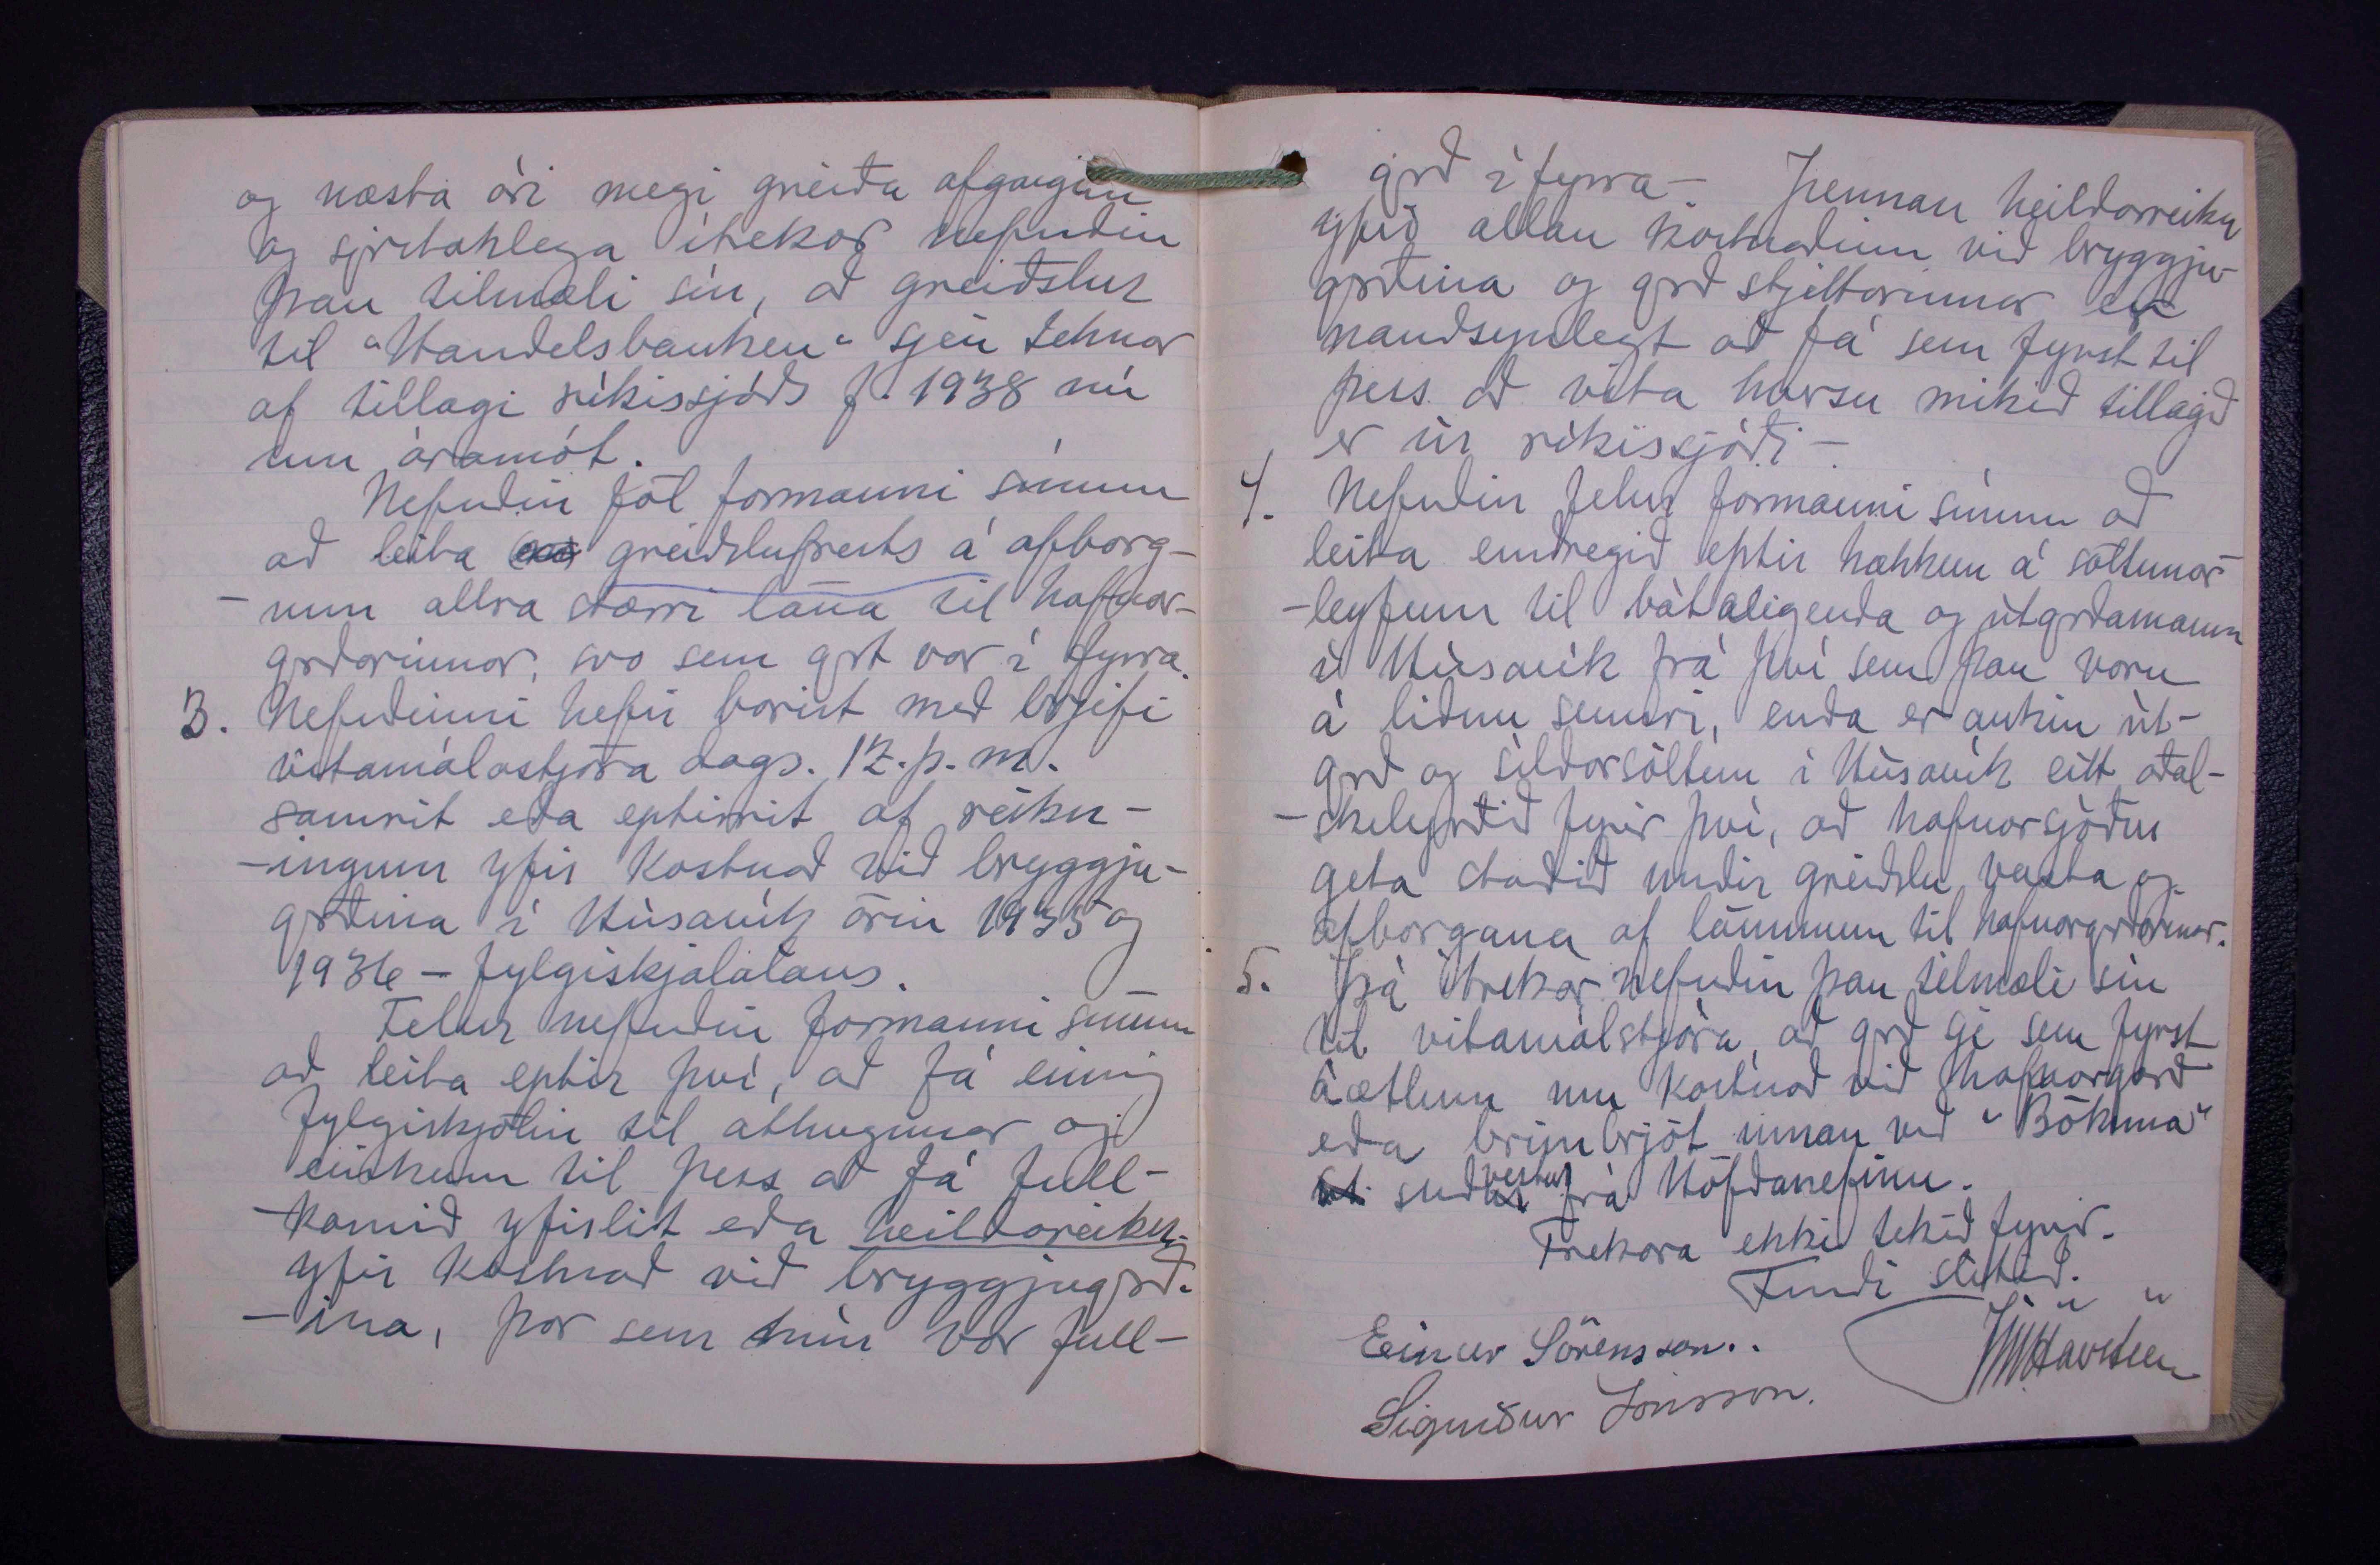 og næsta ári megi greiða afganginn
og sjrstaklega ítrekar nefndin
þau tilmæli sín, að greiðslur
til "Handelsbanken" sjeu teknar
af tillagi ríkissjóðs f. 1938 nú
um áramót.
Nefndin fól formanni sínum
að leita greiðslufrests á afborg-
-unum allra stærri lána til hafnar-
grðarinnar, svo sem grt var í fyrra.
3. Nefndinni hefir borist með brjefi
vitamálastjóra dags. 12. þ. m.
samrit eða eptirrit af reikn-
-ingum yfir kostnað við bryggju-
grðina í Húsavík árin 1935 og
1936 - fylgiskjalalaus.
Felur nefndin formanni sínum
að leita eptir því, að fá einnig
fylgiskjölin til athugunar og
einkum til þess að fá full-
-komið yfirlit eða heildarreikn.
yfir kostnað við bryggjugrð-
-ina, þar sem hún var full-
grð í fyrra - Þennan heildarreikn
yfir allan kostnaðinn við bryggju-
grðina og grð skjittarinnar er
nauðsynlegt að fá sem fyrst til
þess að vita hversu mikið tillagið
er úr ríkissjóði -
4. Nefndin felur formanni sínum að
leita eindregið eptir hækkun á söltunar-
-leyfum til bátaeigenda og útgrðamanna
í Húsavík frá því sem þau voru
á liðnu sumri, enda er aukin út-
grð og síldarsöltun í Húsavík eitt aðal-
-skilyrðið fyrir því, að hafnarsjóður
geta staðið undir greiðslu vaxta og
afborgana af lánunum til hafnargrðarinnar.
5. Þá ítrekar nefndin þau tilmæli sín
til vitamálstjóra, að grð sje sem fyrst
áætlun um kostnað við hafnargarð
eða brimbrjót innan við "Bökuna"
suðvestur frá Höfðanefinu.
Frekara ekki tekið fyrir.
Fundi slitið.
" "
Einar Sörensson..
JHavsteen
Sigurður Jónsson.